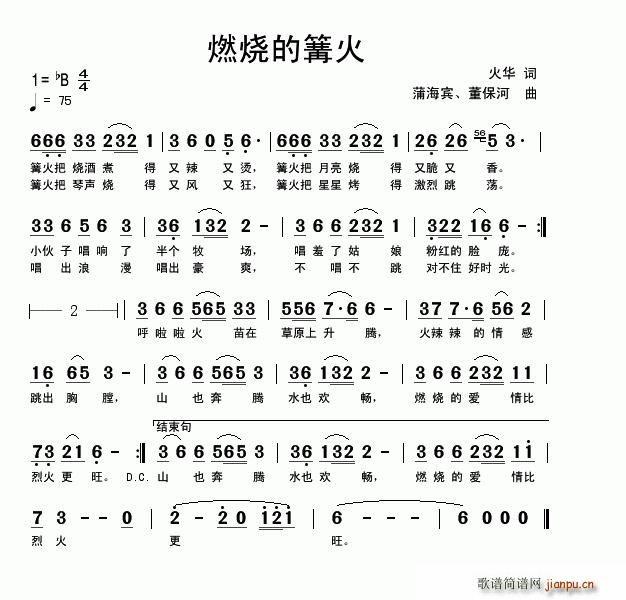 燃烧的篝火
1=♭B 4/4
火华 词
♩= 75
蒲海宾、董保河 曲
666 33 232 1 | 3 6 0 5 6· | 666 33 232 1 | 26 26 56 5 3· |
篝火把 烧酒煮 得 又 辣 又 烫, 篝火把 月亮烧 得 又脆 又 香。
篝火把 琴声烧 得 又 风 又 狂, 篝火把 星星烤 得 激烈 跳 荡。
33 6 5 6 3 | 36 132 2 - | 3 6 6 232 1 | 322 16 6 - :||
小伙 子 唱 响 了 半个 牧 场, 唱 羞 了 姑 娘 粉红的 脸 庞。
唱 出 浪 漫 唱出 豪 爽, 不 唱 不 跳 对不住 好时 光。
2 | 3 6 6 565 33 | 556 7·6 6 - | 37 7·6 56 2 |
呼 啦 啦 火 苗在 草原上 升 腾, 火辣 辣 的 情 感
16 65 3 - | 3 6 6 565 3 | 36 132 2 - | 3 6 6 232 11 |
跳出 胸 膛, 山 也 奔 腾 水也 欢 畅, 燃 烧 的 爱 情比
结束句
73 21 6 - :|| 3 6 6 565 3 | 36 132 2 - | 3 6 6 232 1i |
烈火 更 旺。 D.C. 山 也 奔 腾 水也 欢 畅, 燃 烧 的 爱 情比
7 3 - 0 | 2 - 20 121 | 6 - - - | 6 0 0 0 ||
烈 火 更 旺。
歌谱简谱网
jianpu.cn